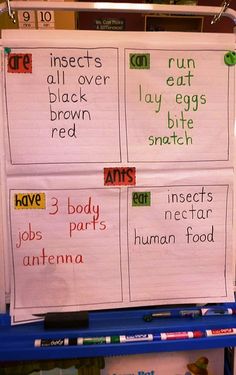 9 10
are
insects
all over
black
brown
red
can
run
eat
lay eggs
bite
snatch
ANTS
have
3 body
parts
jobs
antenna
eat
insects
nectar
human food